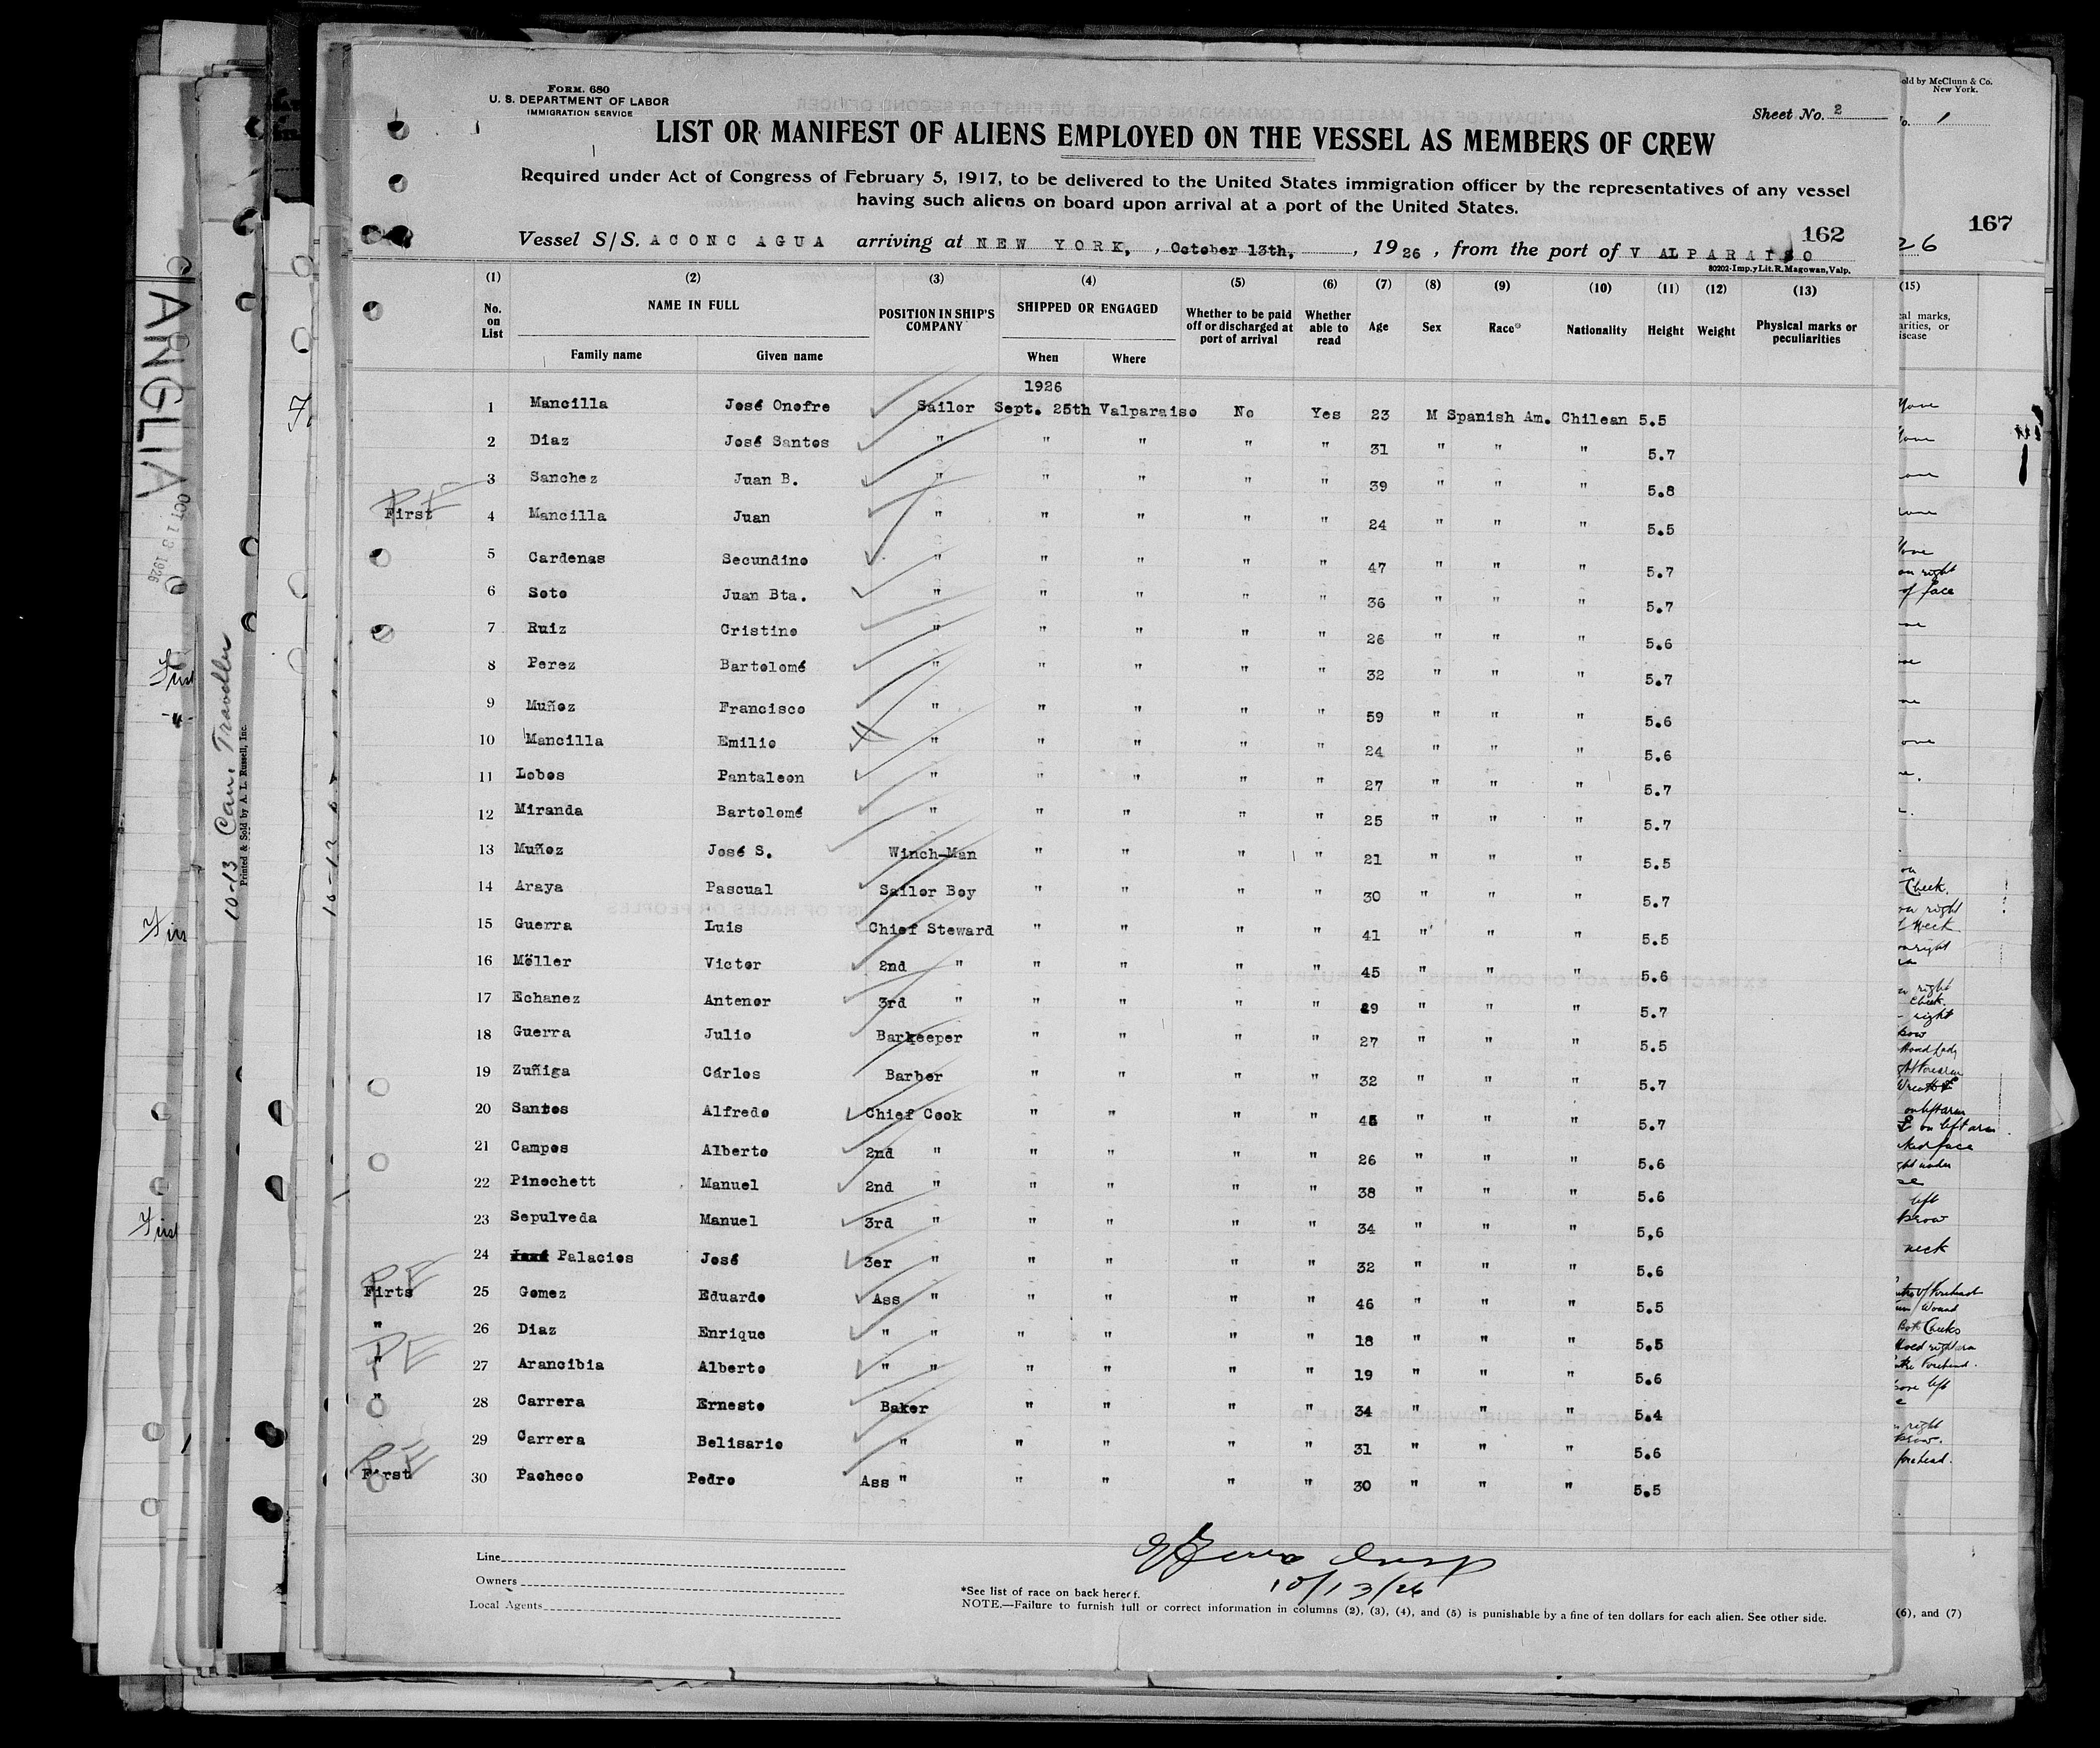 FORM. 680
U. S. DEPARTMENT OF LABOR
IMMIGRATION SERVICE
Sheet No. 2
LIST OR MANIFEST OF ALIENS EMPLOYED ON THE VESSEL AS MEMBERS OF CREW
Required under Act of Congress of February 5, 1917, to be delivered to the United States immigration officer by the representatives of any vessel
having such aliens on board upon arrival at a port of the United States.
162
Vessel S/S. ACONCAGUA arriving at NEW YORK, , October 13th, , 1926 , from the port of VALPARAISO
80202-Imp.y Lit. R. Magowan, Valp.
(1) (2) (3) (4) (5) (6) (7) (8) (9) (10) (11) (12) (13)
No. on List NAME IN FULL POSITION IN SHIP'S COMPANY SHIPPED OR ENGAGED Whether to be paid off or discharged at port of arrival Whether able to read Age Sex Race* Nationality Height Weight Physical marks or peculiarities
Family name Given name When Where
1926
1 Mancilla José Onofre Sailor Sept. 25th Valparaiso No Yes 23 M Spanish Am. Chilean 5.5
2 Diaz José Santos " " " " " 31 " " " 5.7
3 Sanchez Juan B. " " " " " 39 " " " 5.8
First PE 4 Mancilla Juan " " " " " 24 " " " 5.5
5 Cardenas Secundino " " " " " 47 " " " 5.7
6 Soto Juan Bta. " " " " " 36 " " " 5.7
7 Ruiz Cristino " " " " " 26 " " " 5.6
8 Perez Bartolomé " " " " " 32 " " " 5.7
9 Muñoz Francisco " " " " " 59 " " " 5.6
10 Mancilla Emilio " " " " " 24 " " " 5.6
11 Lobos Pantaleon " " " " " 27 " " " 5.7
12 Miranda Bartolomé " " " " " 25 " " " 5.7
13 Muñoz José S. Winch-Man " " " " 21 " " " 5.5
14 Araya Pascual Sailor Boy " " " " 30 " " " 5.7
15 Guerra Luis Chief Steward " " " " 41 " " " 5.5
16 Möller Victor 2nd " " " " " 45 " " " 5.6
17 Echanez Antenor 3rd " " " " " 29 " " " 5.7
18 Guerra Julio Barkeeper " " " " 27 " " " 5.5
19 Zuñiga Cárlos Barber " " " " 32 " " " 5.7
20 Santos Alfredo Chief Cook " " " " 45 " " " 5.7
21 Campos Alberto 2nd " " " " " 26 " " " 5.6
22 Pinochett Manuel 2nd " " " " " 38 " " " 5.6
23 Sepulveda Manuel 3rd " " " " " 34 " " " 5,6
24 Palacios José 3er " " " " " 32 " " " 5.6
Firts PE 25 Gomez Eduardo Ass " " " " " 46 " " " 5.5
" 26 Diaz Enrique " " " " " " 18 " " " 5.5
" PE 27 Arancibia Alberto " " " " " " 19 " " " 5.6
" 28 Carrera Ernesto Baker " " " " 34 " " " 5.4
29 Carrera Belisario " " " " " 31 " " " 5.6
First PE 30 Pacheco Pedro Ass " " " " " 30 " " " 5.5
Line
Owners
Local Agents
10/13/26
*See list of race on back hereof.
NOTE.—Failure to furnish full or correct information in columns (2), (3), (4), and (5) is punishable by a fine of ten dollars for each alien. See other side.
ANGLIA
OCT 13 1926
10-13 Cam. Traveller
Printed & Sold by A. L. Russell, Inc.
old by McClunn & Co.
New York.
1
167
26
(15)
on right
of face
Cheek.
right
on left arm
left
neck
Both Cheeks
forehead.
(6), and (7)